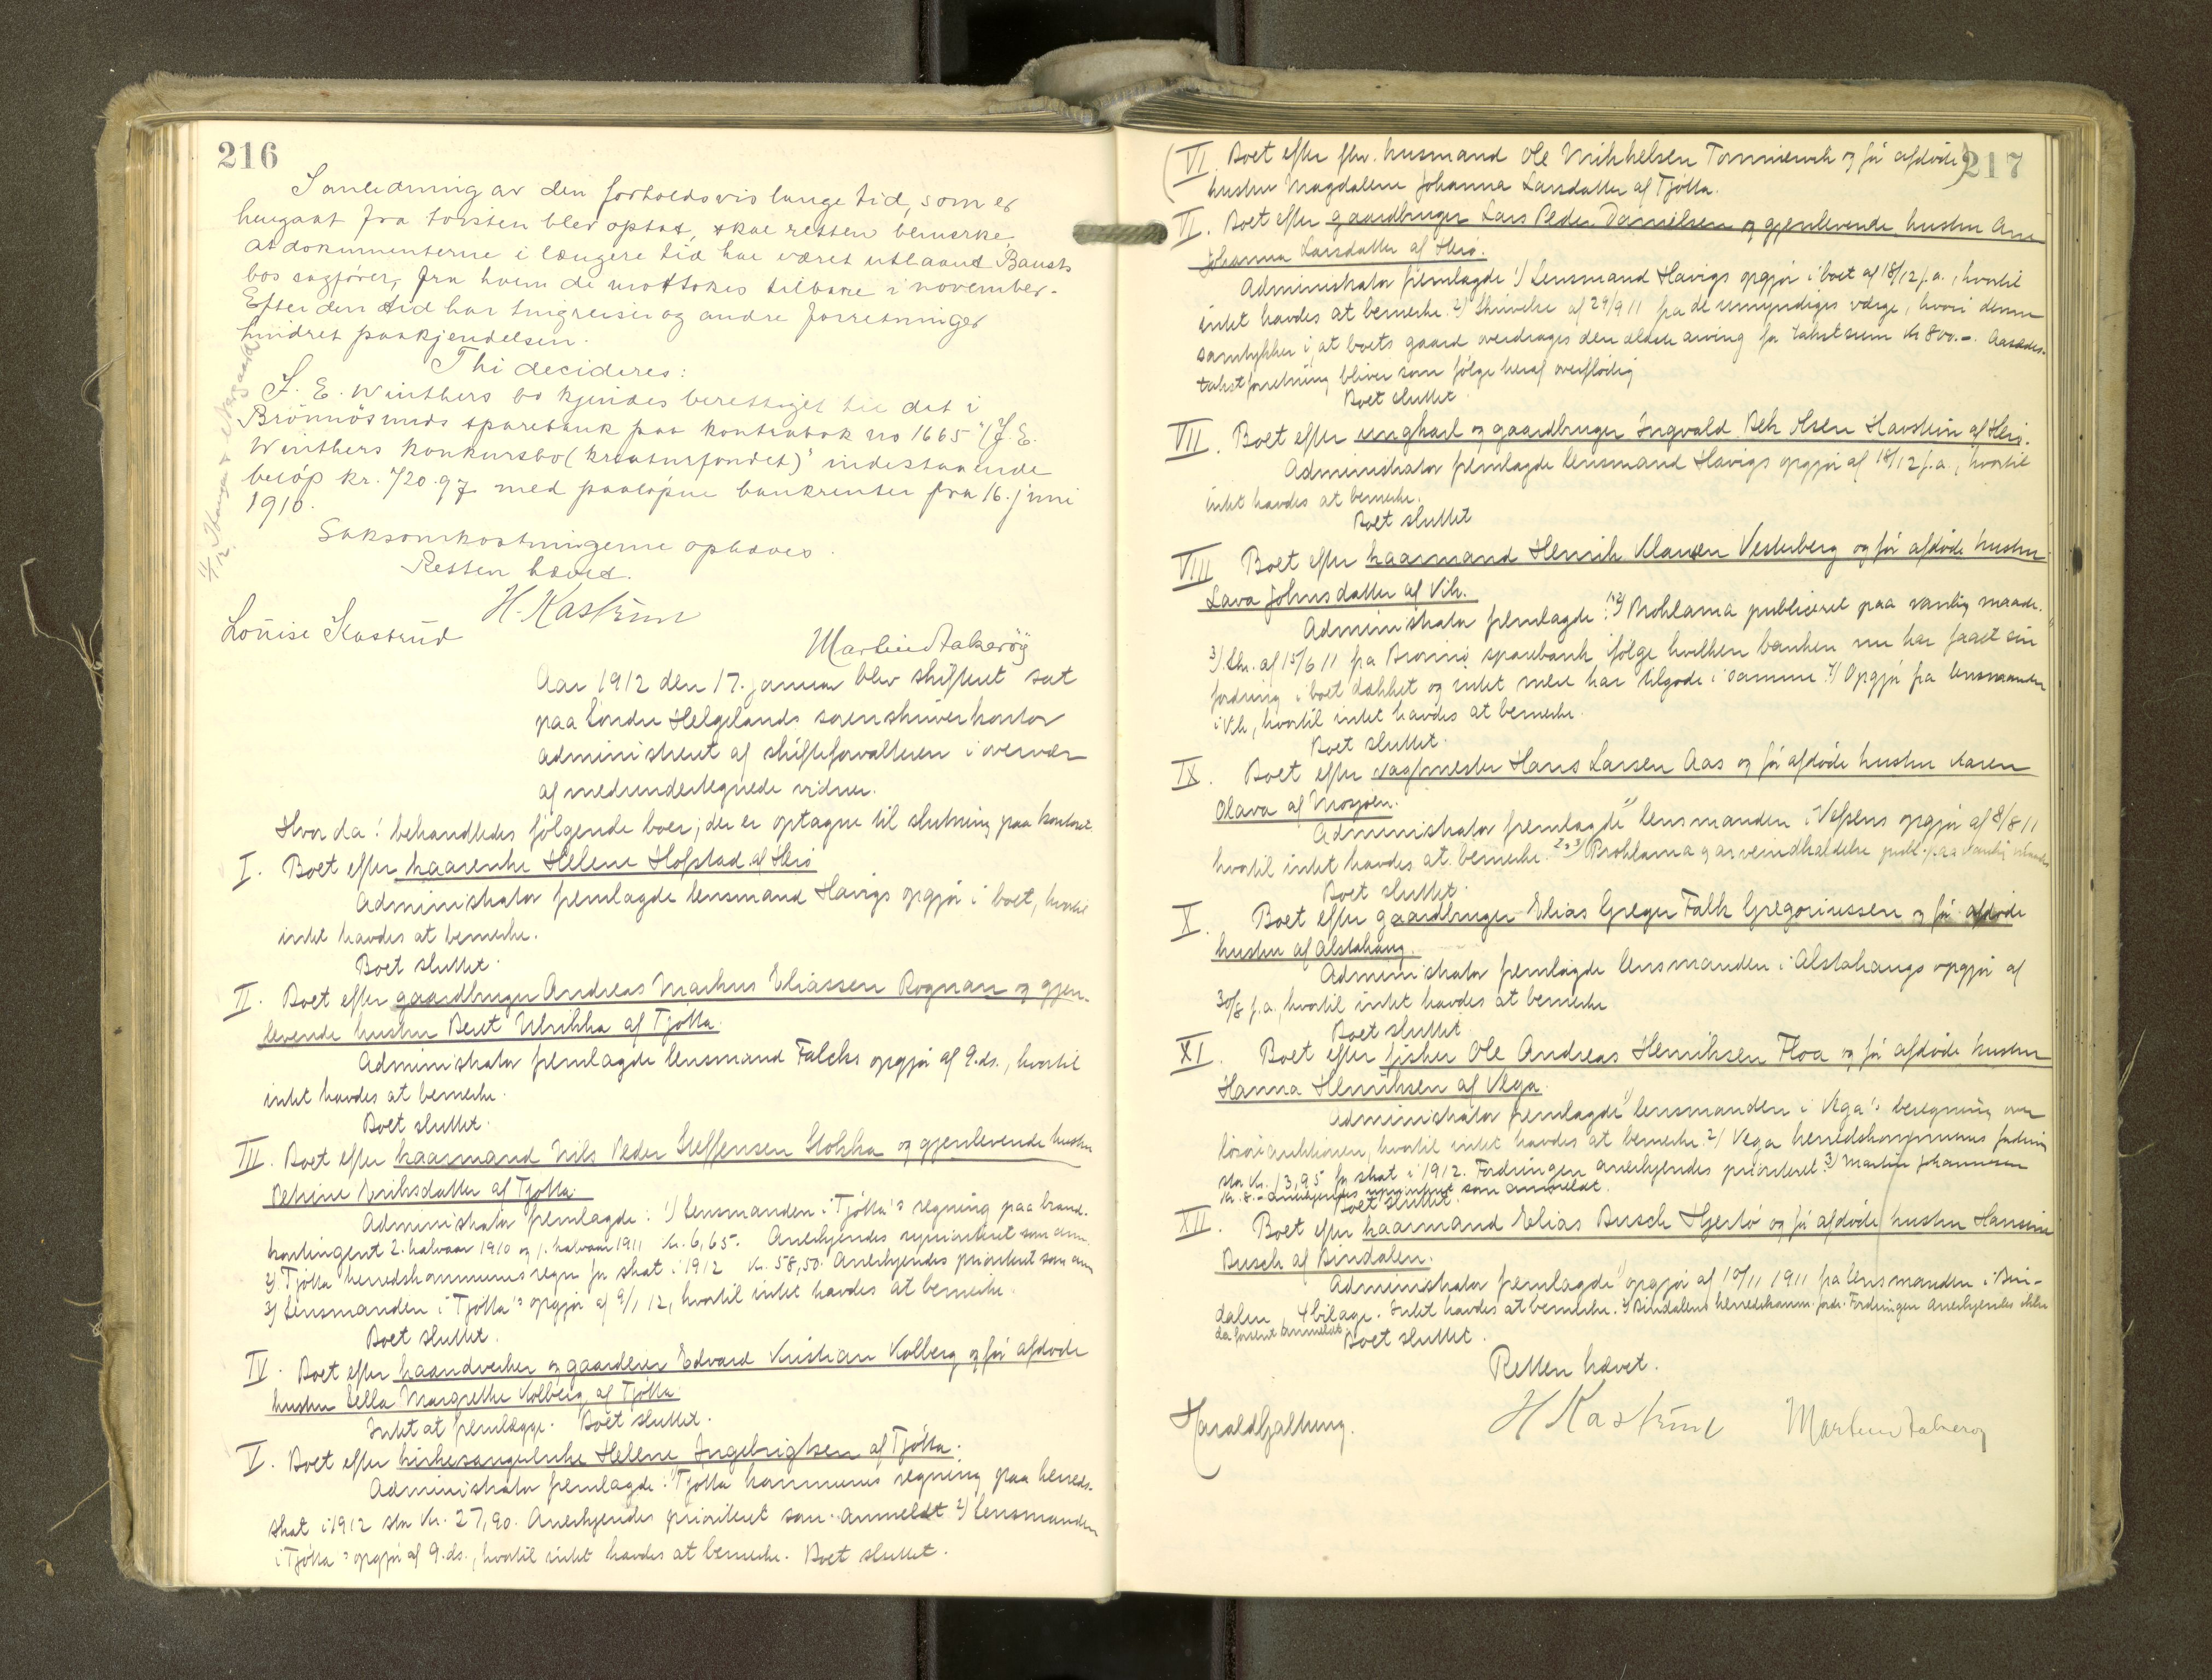 216
I anledning av den forholdsvis lange tid, som er
hengaat fra tvisten blev optat, skal retten bemerke
at dokumenterne i længere tid har været utlaant Bausts
bos sagfører, fra hvem de mottokes tilbake i november.
Efter den tid har tingreiser og andre forretninger
hindret paakjendelsen.
Thi decideres:
J. E. Winthers bo kjendes berettiget til det i
Brönnösunds sparebank paa kontrabok no 1665 "(J. E.
Winthers konkursbo (kreaturfondet)" indestaaende
beløp kr. 720.97 med paaløpne bankrenter fra 16. juni
1910.
Saksomkostningerne ophæves.
Retten hævet.
H. Kastrud
Louise Kastrud
Martin Aakerøy
Aar 1912 den 17. januar blev skifteret sat
paa Søndre Helgelands sorenskriverkontor
administreret af skifteforvalteren i overvær
af medundertegnede vidner.
Hvor da: behandledes følgende boer, der er optagne til slutning paa kontoret.
I. Boet efter kaarenke Helene Hofstad af Herø
Administrator fremlagde lensmand Havigs opgjør i boet, hvortil
intet havdes at bemerke.
Boet sluttet.
II. Boet efter gaardbruger Andreas Markus Eliassen Rognan og gjen-
levende hustru Berit Ulrikka af Tjøtta.
Administrator fremlagde lensmand Falchs opgjør af 9. ds., hvortil
intet havdes at bemerke.
Boet sluttet.
III. Boet efter kaarmand Nils Peder Steffensen Stokka og gjenlevende hustru
Petrine Eriksdatter af Tjøtta.
Administrator fremlagde: 1) Lensmanden i Tjøtta's regning paa brand-
kontingent 2. halvaar 1910 og 1. halvaar 1911 kr. 6,65. Anerkjendes uprioriteret som anm.
2) Tjøtta herredskommunes regn. for skat i 1912 kr. 58,50. Anerkjendes prioriteret som anm
3) Lensmanden i Tjøtta's opgjør af 9/1 12, hvortil intet havdes at bemerke.
Boet sluttet.
IV. Boet efter haandverker og gaardeier Edvard Kristian Kolberg og før afdøde
hustru Sella Margrethe Kolberg af Tjøtta.
Intet at fremlægge. Boet sluttet.
V. Boet efter kirkesangerenke Helene Ingebrigtsen af Tjøtta.
Administrator fremlagde: 1) Tjøtta kommunes regning paa herreds-
skat i 1912 stor kr. 27,90. Anerkjendes prioriteret som anmeldt. 2) Lensmanden
i Tjøtta's opgjør af 9. ds., hvortil intet havdes at bemerke. Boet sluttet.
217
(VI. Boet efter fhv. husmand Ole Mikkelsen og før afdøde)
hustru Magdalene Johanna Larsdatter af Tjøtta.
VI. Boet efter gaardbruger Lars Peder Danielsen og gjenlevende hustru Ane
Johanna Larsdatter af Herø.
Administrator fremlagde 1) Lensmand Havigs opgjør i boet af 18/12 f.a., hvortil
intet havdes at bemerke. 2) Skrivelse af 29/9 11 fra de umyndiges værge, hvori denne
samtykker i, at boets gaard overdrages den ældste arving for takstsum kr 800.-. Aasædes-
takstforretning bliver som følge heraf overflødig
Boet sluttet.
VII. Boet efter ungkarl og gaardbruger Ingvald Havstein af Herø.
Administrator fremlagde lensmand Havigs opgjør af 18/12 f.a., hvortil
intet havdes at bemerke.
Boet sluttet
VIII Boet efter kaarmand Henrik Klausen Vesterberg og før afdøde hustru
Lava Johnsdatter af Vik.
Administrator fremlagde: 1-2) Proklama publiceret paa vanlig maade.
3) Skr. af 15/6 11 fra Brønnø sparebank, ifølge hvilken banken nu har faaet sin
fordring i boet dækket og intet mere har tilgode i samme. 4) Opgjør fra lensmanden
i Vik, hvortil intet havdes at bemerke.
Boet sluttet.
IX. Boet efter vagtmester Hans Larsen Aas og før afdøde hustru Karen
Olava af Mosjøen.
Administrator fremlagde 1) lensmanden i Vefsens opgjør af 8/8 11
hvortil intet havdes at bemerke. 2-3) Proklama og arveindkaldelse publ. paa vanlig maade
Boet sluttet.
X. Boet efter gaardbruger Elias Greger Falk Gregoriussen og før afdøde
hustru af Alstahaug.
Administrator fremlagde lensmanden i Alstahaugs opgjør af
30/8 f.a., hvortil intet havdes at bemerke
Boet sluttet
XI. Boet efter fisker Ole Andreas Henriksen Floa og før afdøde hustru
Hanna Henriksen af Vega.
Administrator fremlagde 1) lensmanden i Vega's beregning over
løsøreauktionen, hvortil intet havdes at bemerke. 2) Vega herredskommunes fordring
stor kr. 13,95 for skat i 1912. Fordringen anerkjendes prioriteret. 3) Martin Johannesen
kr. 8.- Anerkjendes uprioritert som anmeldt.
Boet sluttet.
XII. Boet efter kaarmand Elias Busch Hjertø og før afdøde hustru Hansine
Busch af Bindalen.
Administrator fremlagde 1) opgjør af 10/11 1911 fra lensmanden i Bin-
dalen, 4 bilage. Intet havdes at bemerke. 2) Bindalens herredskomm. fordr. Fordringen anerkjendes ikke
da forsent anmeldt.
Boet sluttet.
Retten hævet.
Harald Hjeltung.
H Kastrud
Martin Aakerøy